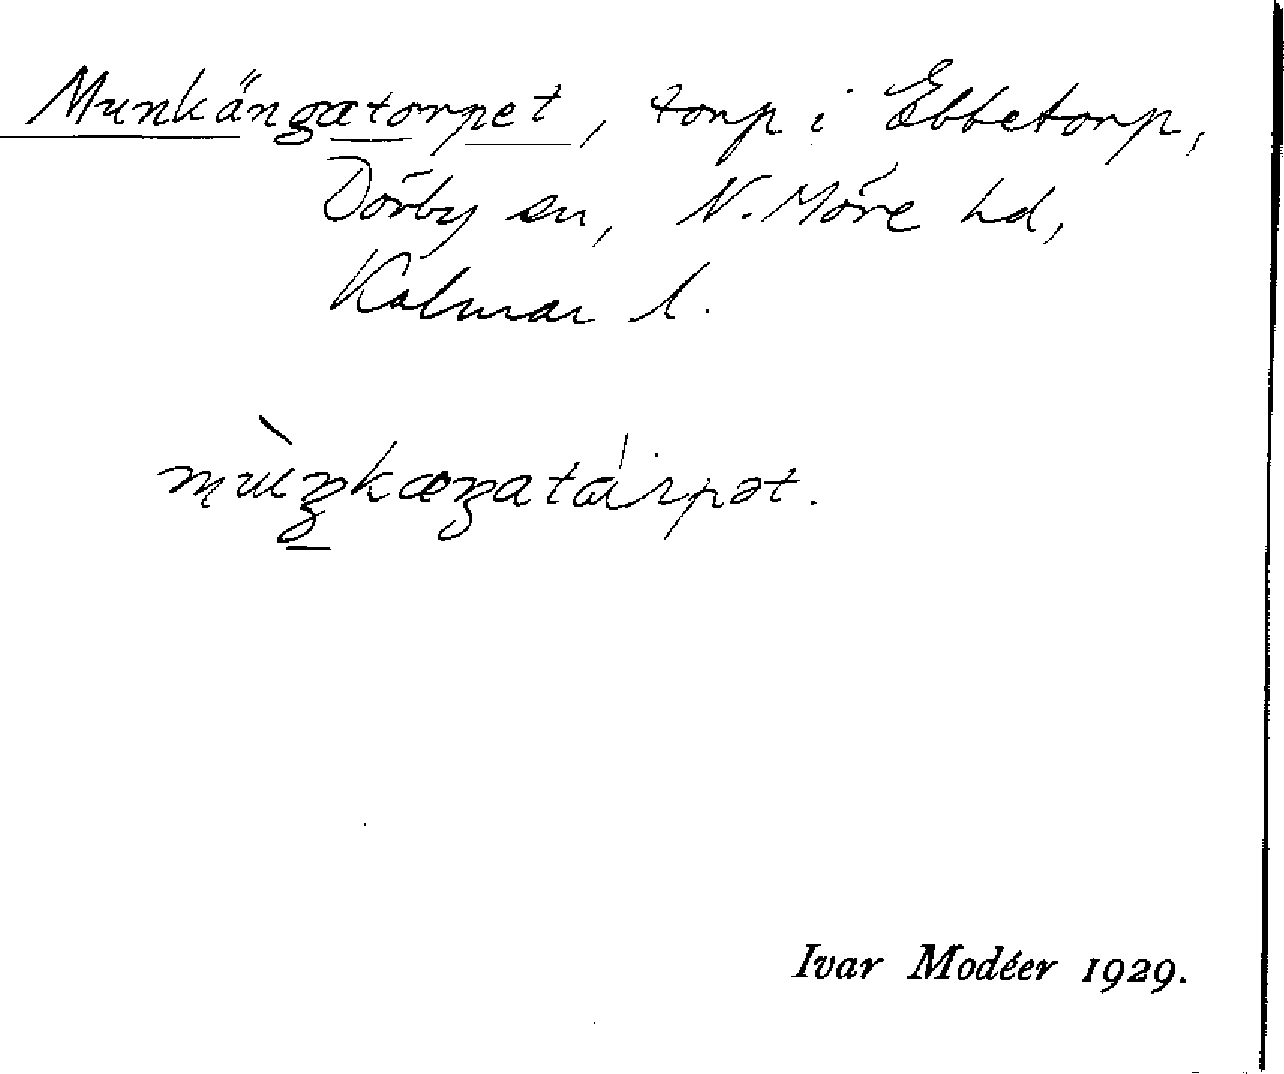 Munkängatorpet, torp i Ebbetorp,
Dörby sn, N. Möre hd,
Kalmar l.
mùŋkæŋatárpət.
Ivar Modéer 1929.